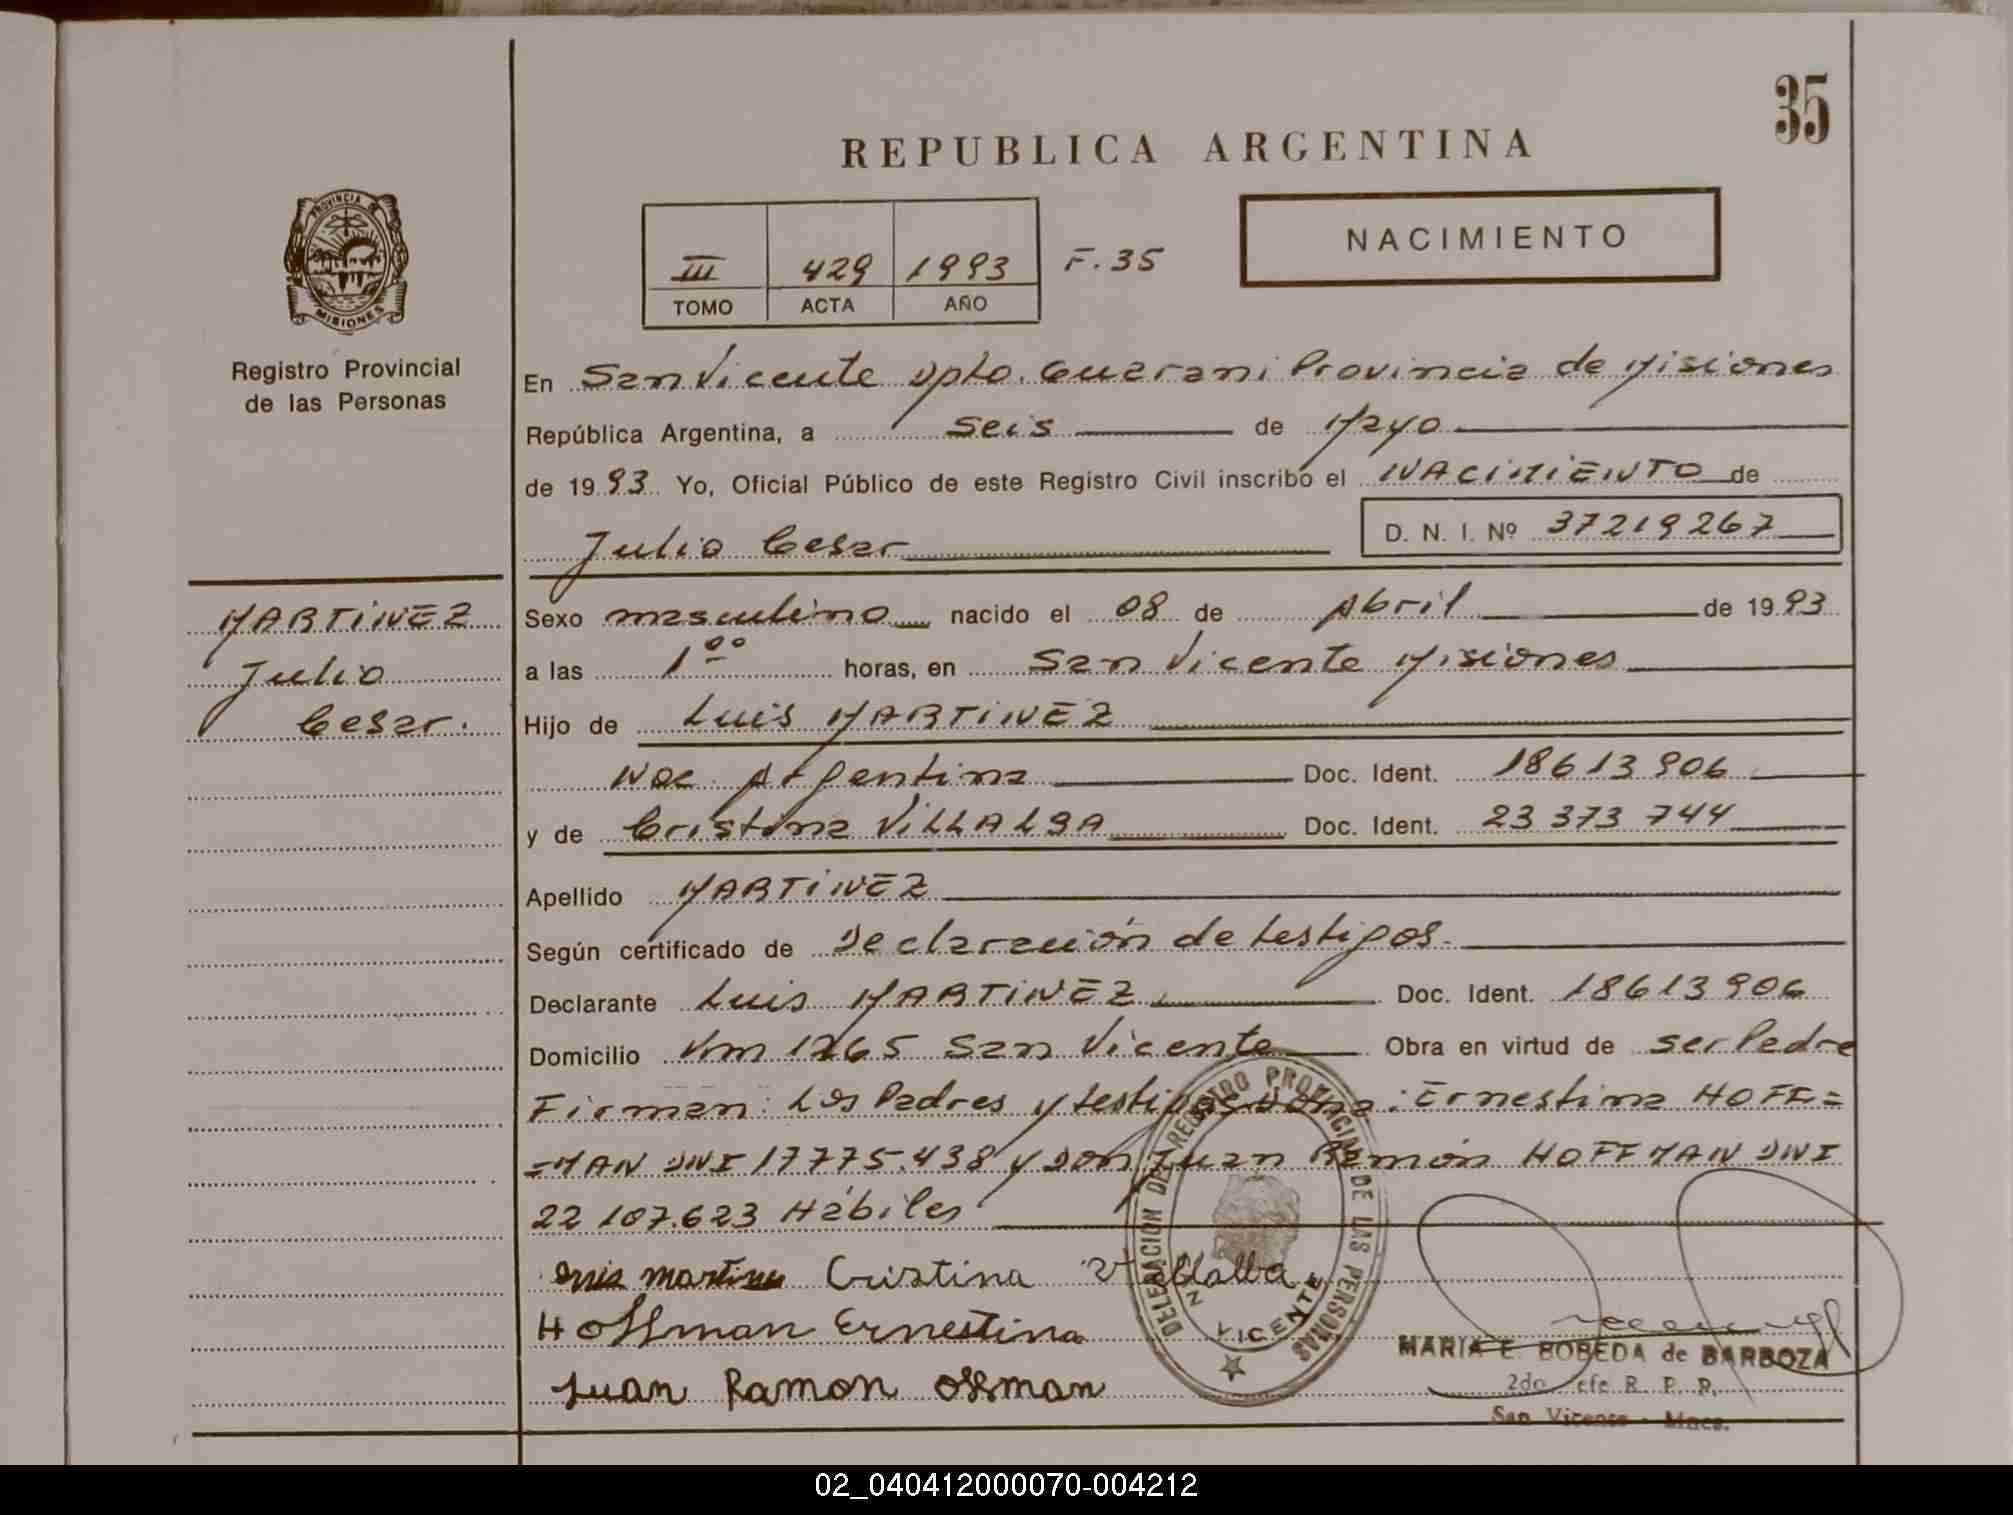 35
REPUBLICA ARGENTINA
PROVINCIA DE
MISIONES
Registro Provincial
de las Personas
III 429 1993 F. 35
TOMO ACTA AÑO
NACIMIENTO
En San Vicente Dpto. Guarani Provincia de Misiones
República Argentina, a seis de Mayo
de 1993 Yo, Oficial Público de este Registro Civil inscribo el NACIMIENTO de
Julio Cesar D. N. I. Nº 37219267
MARTINEZ
Julio
Cesar.
Sexo masculino nacido el 08 de Abril de 1993
a las 1⁰⁰ horas, en San Vicente Misiones
Hijo de Luis MARTINEZ
Nac. Argentina Doc. Ident. 18613906
y de Cristina VILLALBA Doc. Ident. 23 373 744
Apellido MARTINEZ
Según certificado de Declaración de testigos.
Declarante Luis MARTINEZ Doc. Ident. 18613906
Domicilio San Vicente Obra en virtud de ser Padre
Firman: Los Padres y testigos Doña: Ernestina HOFF=
=MAN DNI 17775.438 y Don Juan Ramón HOFFMAN DNI
22 107.623 Hábiles
Luis Martinez Cristina Villalba
Hoffman Ernestina
Juan Ramon Ossman
DELEGACION DEL REGISTRO PROVINCIAL DE LAS PERSONAS
VICENTE
MARIA E. BOBEDA de BARBOZA
2do. Jefe R. P. P.
San Vicente - Mnes.
02_040412000070-004212